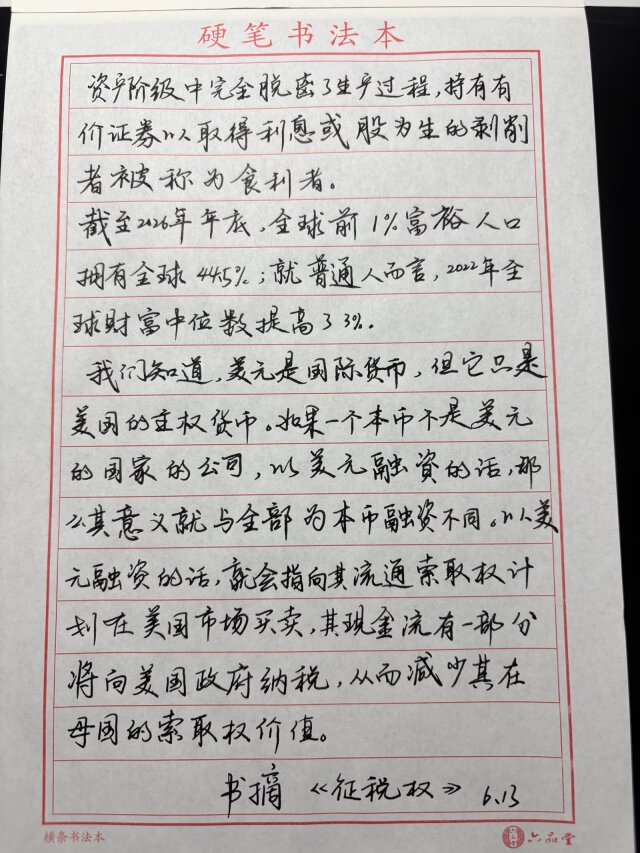 硬笔书法本
资产阶级中完全脱离了生产过程,持有有
价证券以取得利息或股为生的剥削
者被称为食利者。
截至2026年年底,全球前1%富裕人口
拥有全球44.5%;就普通人而言,2022年全
球财富中位数提高了3%。
我们知道,美元是国际货币,但它只是
美国的主权货币。如果一个本币不是美元
的国家的公司,以美元融资的话,那
么其意义就与全部为本币融资不同。以美
元融资的话,就会指向其流通索取权计
划在美国市场买卖,其现金流有一部分
将向美国政府纳税,从而减少其在
母国的索取权价值。
书摘《征税权》 6.13
横条书法本
六品堂